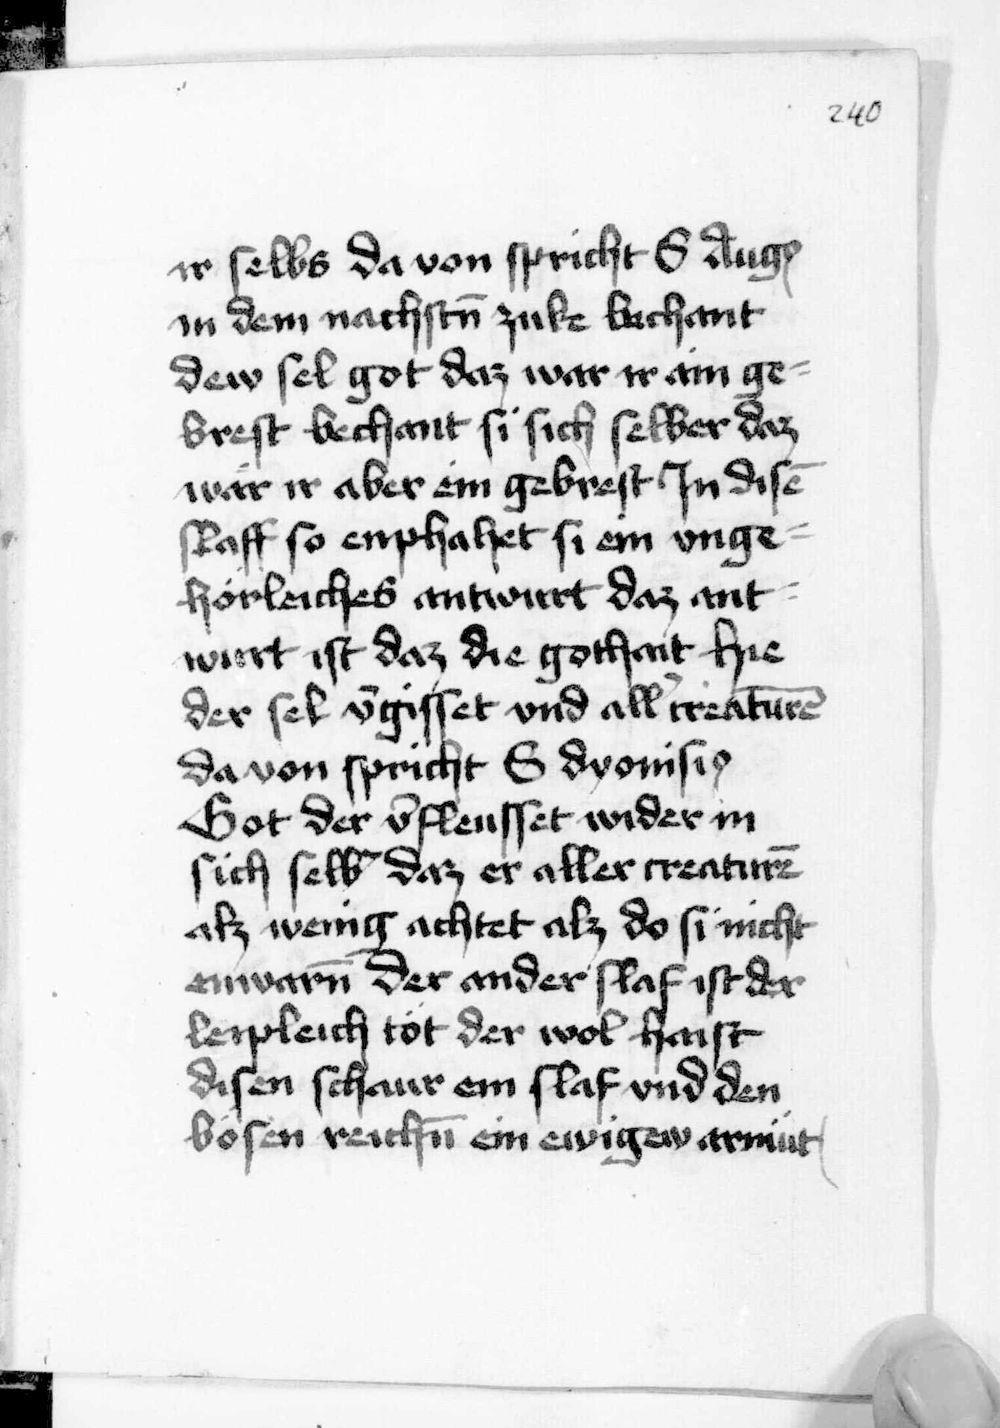 240
ir selbs da von spricht S Augꝰ
in dem nachstn̄ zuke bechant
dew sel got daz war ir ain ge=
brest bechant si sich selber daz
wár ir aber ein gebrest In disē
slaff so enphahet si ein vnge=
hórleiches antwurt daz ant=
wurt ist daz die gothait hie
der sel v̄gisset vnd all᷑ creaturē
da von spricht S dyonisiꝰ
Got der v̄fleusset wider in
sich selb᷑ daz er aller creaturē
alz wenig achtet alz do si nicht
enwarn̄ Der ander slaf ist der
leipleich tót der wol haist
disen schaur ein slaf vnd den
bósen reichn̄ ein ewigew armüt